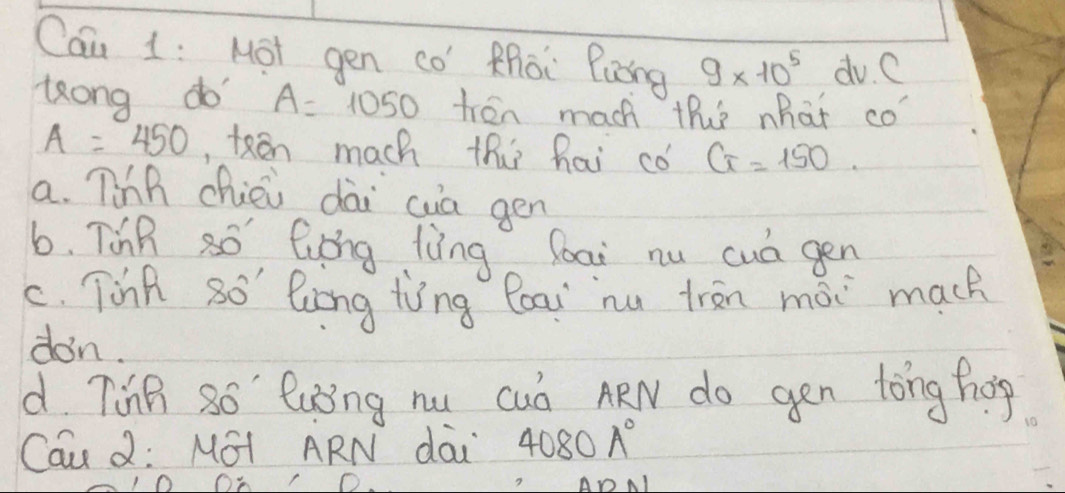 Câu 1: Một gen có khối lượng 9 x 10⁵ đv.C
trong đó A = 1050 trên mạch thứ nhất có
A = 450, trên mạch thứ hai có G = 150.
a. Tính chiều dài của gen
b. Tính số lượng từng loại nu của gen
c. Tính số lượng từng loại nu trên mỗi mạch
đơn.
d. Tính số lượng nu của ARN do gen tổng hợp
Câu 2: Một ARN dài 4080 A°
ARN